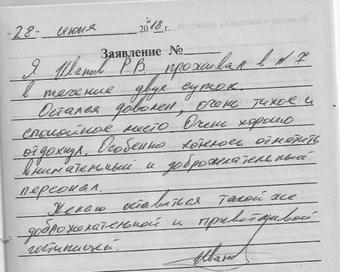 "28" июня 2018 г.
Заявление №
Я Иванов Р.В. проживал в № 7
в течение двух суток.
Остался доволен, очень тихое и
спокойное место. Очень хорошо
отдохнул. Особенно хотелось отметить
внимательный и доброжелательный
персонал.
Желаю оставаться такой же
доброжелательной и приветливой
гостиницей
Иванов